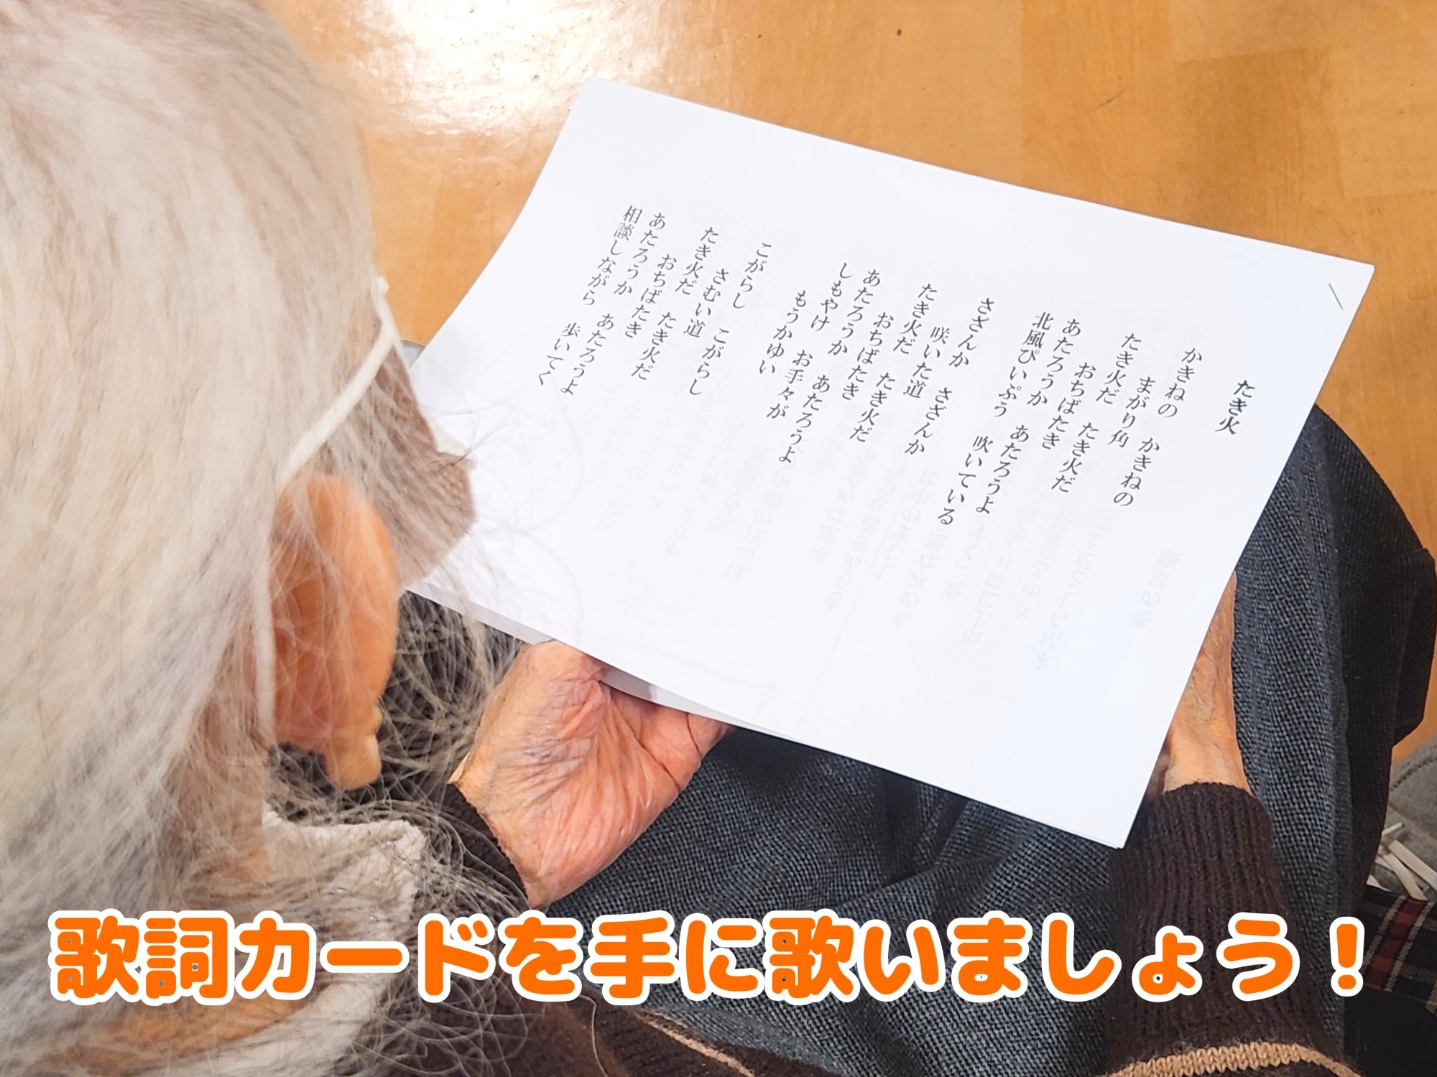 たき火
かきねの　かきねの
まがり角
たき火だ　たき火だ
おちばたき
あたろうか　あたろうよ
北風ぴいぷう　吹いている
さざんか　さざんか
咲いた道
たき火だ　たき火だ
おちばたき
あたろうか　あたろうよ
しもやけ　お手々が
もうかゆい
こがらし　こがらし
さむい道
たき火だ　たき火だ
おちばたき
あたろうか　あたろうよ
相談しながら　歩いてく
歌詞カードを手に歌いましょう！